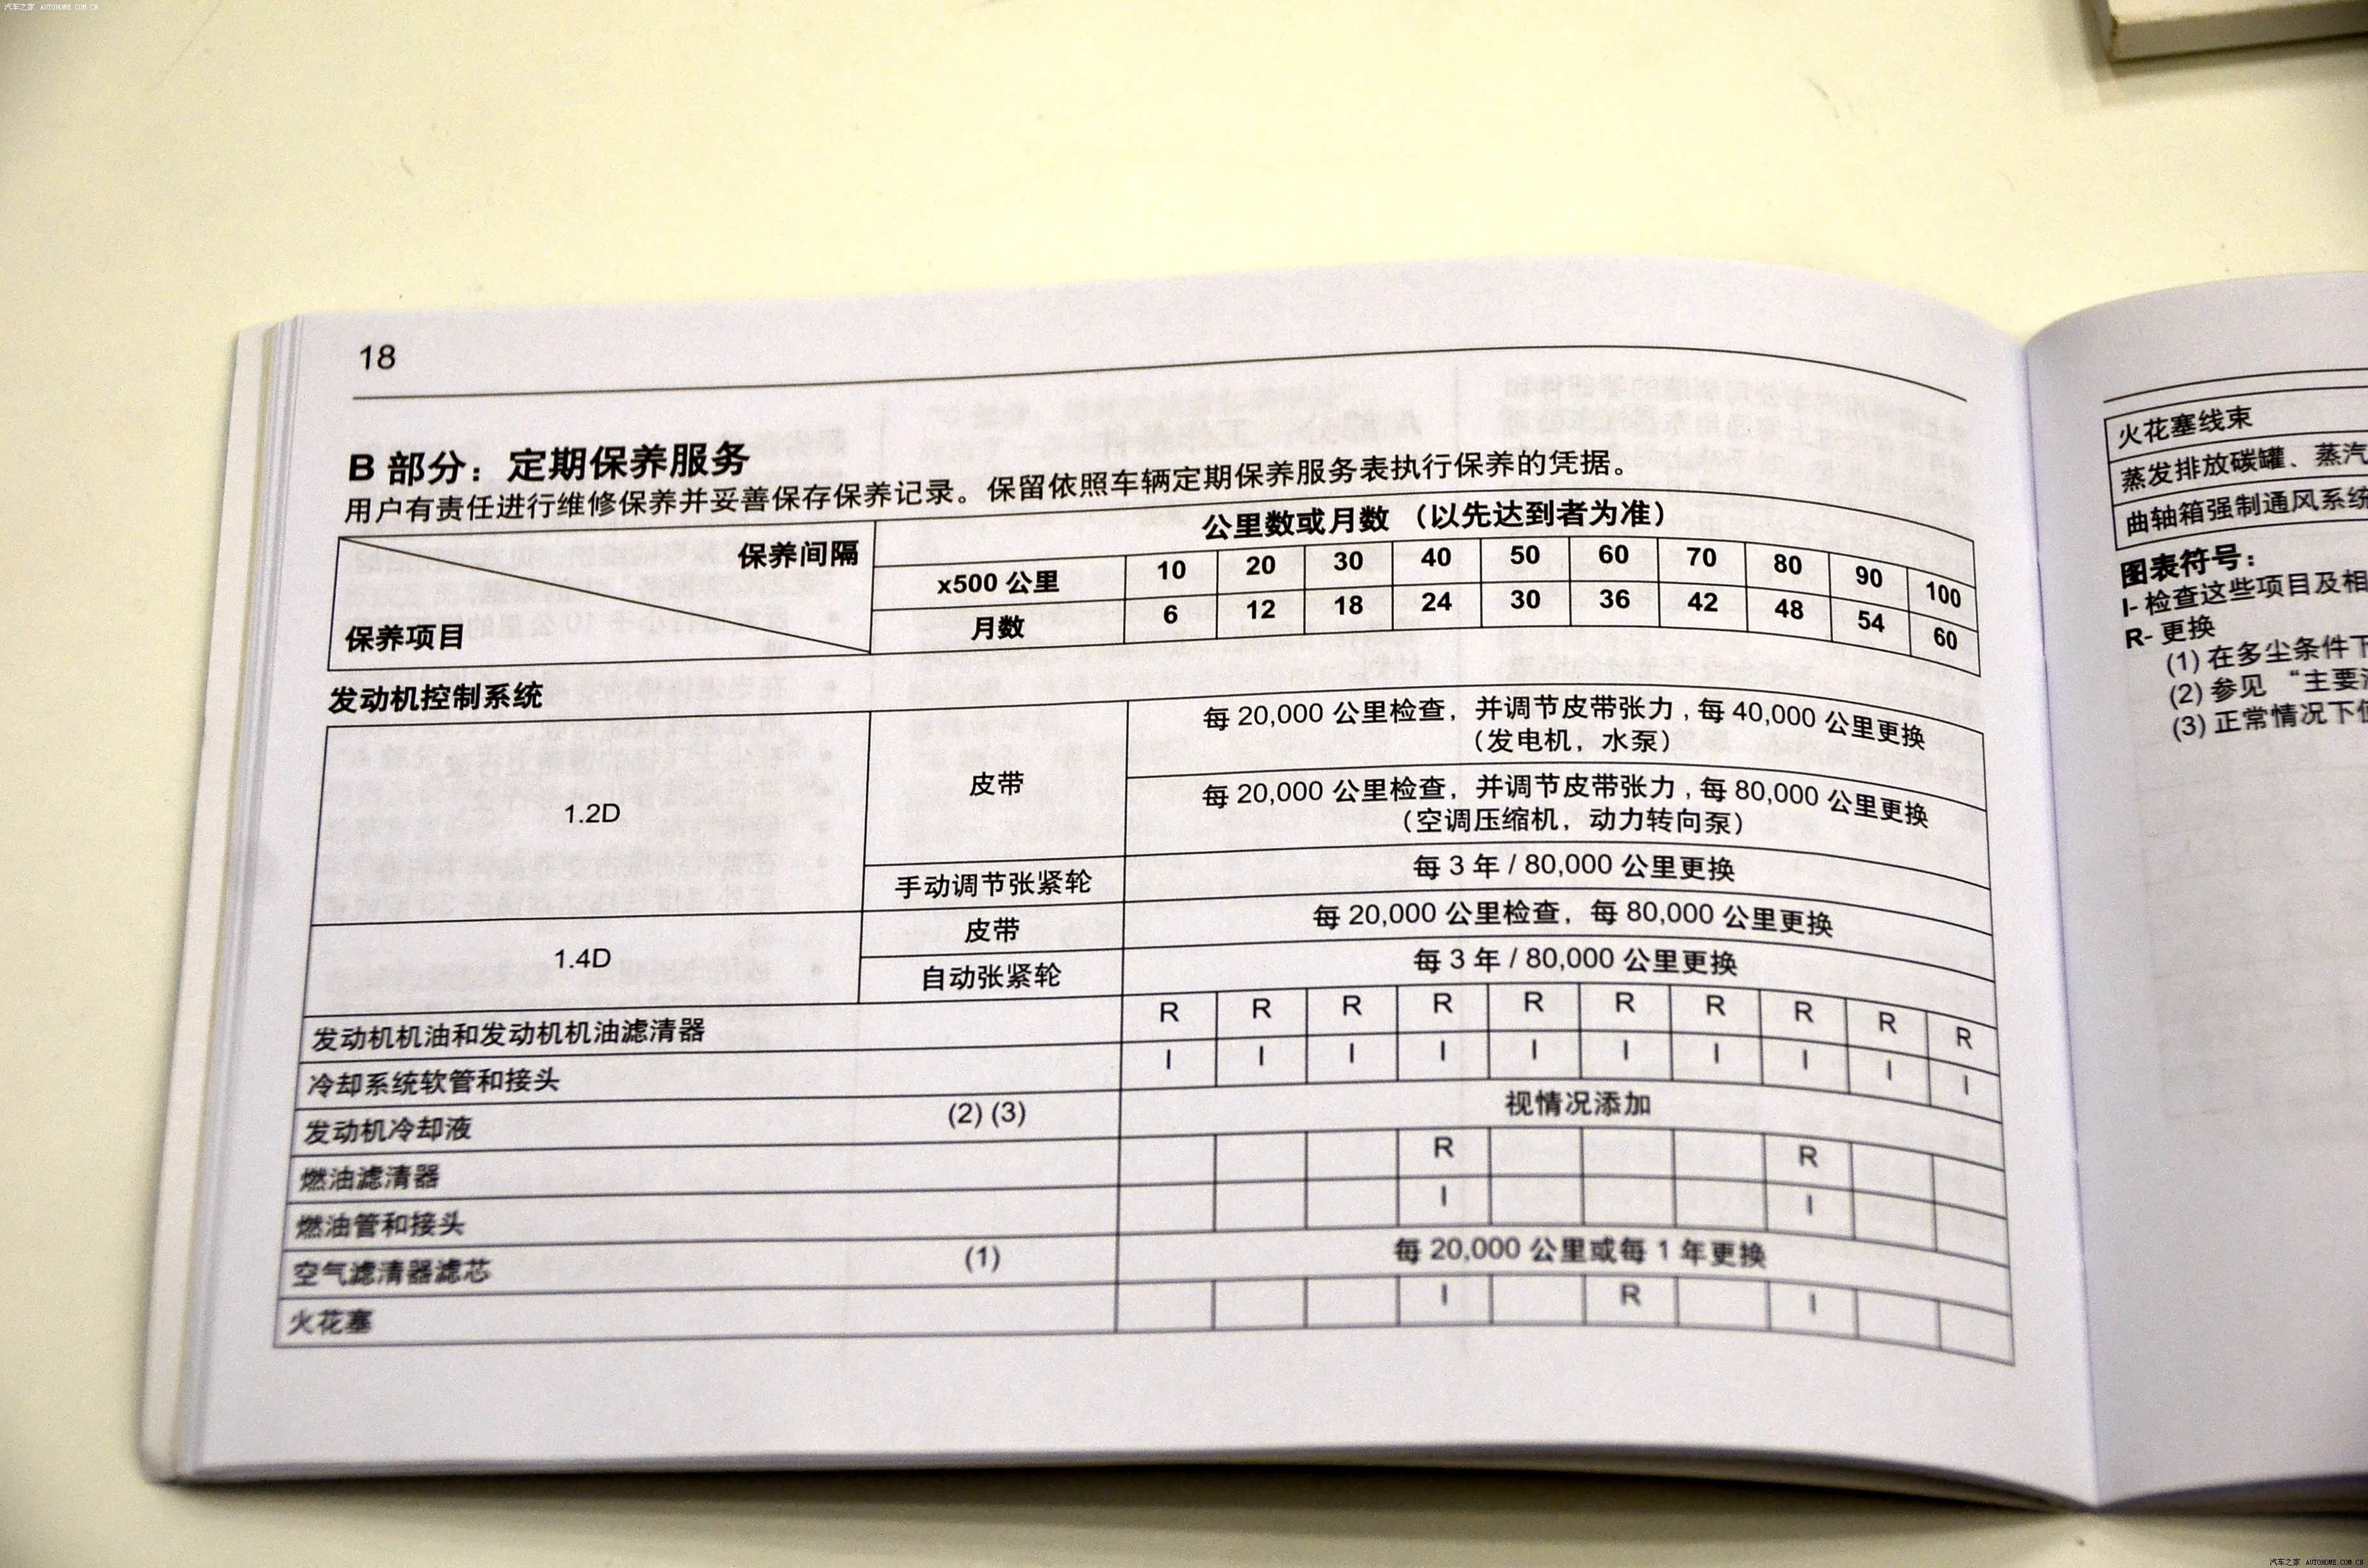 汽车之家 AUTOHOME.COM.CN
18
B 部分：定期保养服务
用户有责任进行维修保养并妥善保存保养记录。保留依照车辆定期保养服务表执行保养的凭据。
保养间隔 公里数或月数（以先达到者为准）
x500 公里 10 20 30 40 50 60 70 80 90 100
保养项目 月数 6 12 18 24 30 36 42 48 54 60
发动机控制系统
每 20,000 公里检查，并调节皮带张力，每 40,000 公里更换
（发电机，水泵）
1.2D 皮带
每 20,000 公里检查，并调节皮带张力，每 80,000 公里更换
（空调压缩机，动力转向泵）
手动调节张紧轮 每 3 年 / 80,000 公里更换
1.4D 皮带 每 20,000 公里检查，每 80,000 公里更换
自动张紧轮 每 3 年 / 80,000 公里更换
发动机机油和发动机机油滤清器 R R R R R R R R R R
冷却系统软管和接头 I I I I I I I I I I
发动机冷却液 (2) (3) 视情况添加
燃油滤清器 R R
燃油管和接头 I I
空气滤清器滤芯 (1) 每 20,000 公里或每 1 年更换
火花塞 I R I
火花塞线束
蒸发排放碳罐、蒸汽
曲轴箱强制通风系统
图表符号：
I- 检查这些项目及相
R- 更换
(1) 在多尘条件下
(2) 参见 “主要
(3) 正常情况下
汽车之家 AUTOHOME.COM.CN